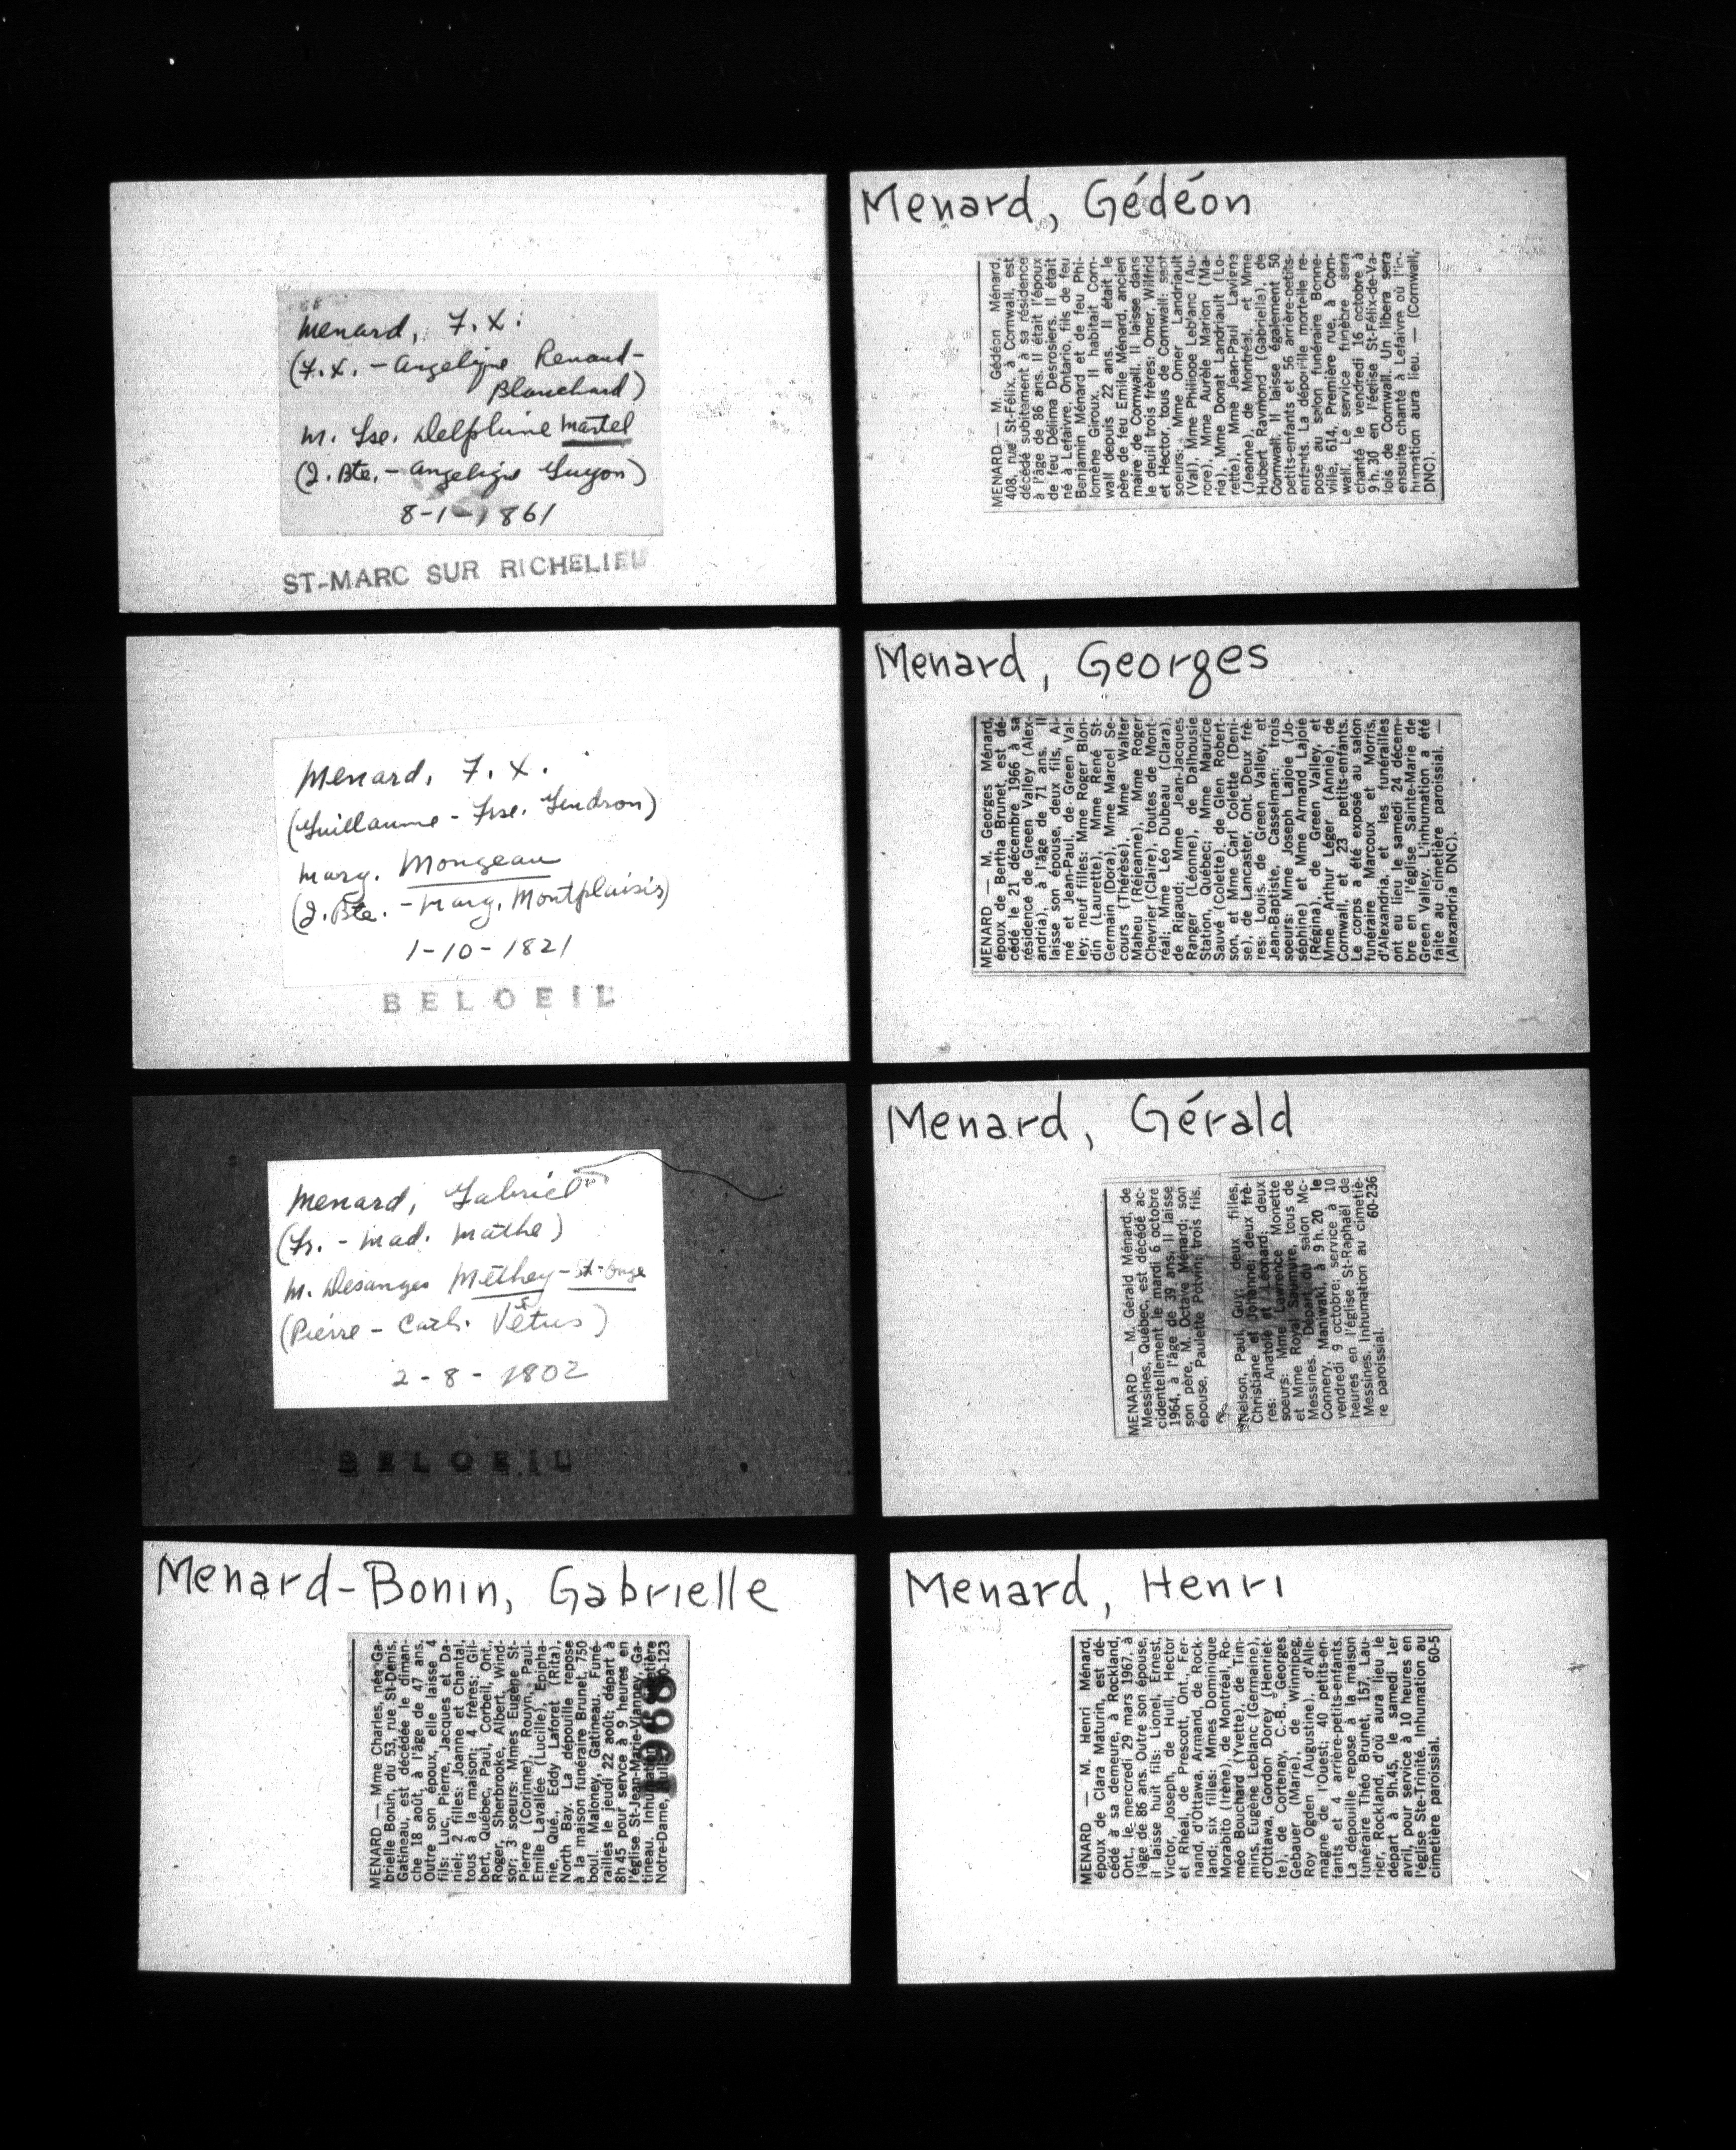 Menard, F.X.
(F.X. - Angelique Renaud-
Blanchard)
m. Lse. Delphine Martel
(J. Bte. - Angelique Guyon)
8-1-1861
ST-MARC SUR RICHELIEU
Menard, F.X.
(Guillaume - Frse. Gendron)
Marg. Mongeau
(J. Bte. - Marg. Montplaisir)
1-10-1821
BELOEIL
Menard, Gabriel
(Fr. - Mad. Mathe)
m. Desanges Methey - St-Onge
(Pierre - Cath. Vêtus)
2-8-1802
BELOEIL
Menard-Bonin, Gabrielle
MENARD — Mme Charles, née Ga-
brielle Bonin, du 53, rue St-Denis,
Gatineau, est décédée le diman-
che 18 août, à l'âge de 47 ans.
Outre son époux, elle laisse 4
fils: Luc, Pierre, Jacques et Da-
niel; 2 filles: Joanne et Chantal,
tous à la maison; 4 frères: Gil-
bert, Québec, Paul, Corbeil, Ont.,
Roger, Sherbrooke, Albert, Wind-
sor; 3 soeurs: Mmes Eugène St-
Pierre (Corinne), Rouyn, Paul-
Emile Lavallée (Lucille), Epipha-
nie, Qué., Eddy Laforet (Rita),
North Bay. La dépouille repose
à la maison funéraire Brunet, 750
boul. Maloney, Gatineau. Funé-
railles le jeudi 22 août; départ à
8h 45 pour service à 9 heures en
l'église St-Jean-Marie-Vianney, Ga-
tineau. Inhumation cimetière
Notre-Dame, Hull. 60-123
1968
Menard, Gédéon
MENARD — M. Gédéon Ménard,
408, rue St-Félix, à Cornwall, est
décédé subitement à sa résidence
à l'âge de 86 ans. Il était l'époux
de feu Délima Desrosiers. Il était
né à Lefaivre, Ontario, fils de feu
Benjamin Ménard et de feu Phi-
lomène Giroux. Il habitait Corn-
wall depuis 22 ans. Il était le
père de feu Emile Ménard, ancien
maire de Cornwall. Il laisse dans
le deuil trois frères: Omer, Wilfrid
et Hector, tous de Cornwall; sept
soeurs: Mme Omer Landriault
(Val), Mme Philippe Leblanc (Au-
rore), Mme Aurèle Marion (Ma-
ria), Mme Donat Landriault (Lo-
rette), Mme Jean-Paul Lavigne
(Jeanne), de Montréal, et Mme
Hubert Raymond (Gabrielle), de
Cornwall. Il laisse également 50
petits-enfants et 56 arrière-petits-
enfants. La dépouille mortelle re-
pose au salon funéraire Bonne-
ville, 614, Première rue, à Corn-
wall. Le service funèbre sera
chanté le vendredi 16 octobre à
9 h. 30 en l'église St-Félix-de-Va-
lois de Cornwall. Un libera sera
ensuite chanté à Lefaivre où l'in-
humation aura lieu. — (Cornwall,
DNC).
Menard, Georges
MENARD — M. Georges Ménard,
époux de Bertha Brunet, est dé-
cédé le 21 décembre 1966 à sa
résidence de Green Valley (Alex-
andria), à l'âge de 71 ans. Il
laisse son épouse, deux fils, Ai-
mé et Jean-Paul, de Green Val-
ley; neuf filles: Mme Roger Blon-
din (Laurette), Mme René St-
Germain (Dora), Mme Marcel Se-
cours (Thérèse), Mme Walter
Maheu (Réjeanne), Mme Roger
Chevrier (Claire), toutes de Mont-
réal; Mme Léo Dubeau (Clara),
de Rigaud; Mme Jean-Jacques
Ranger (Léonne), de Dalhousie
Station, Québec; Mme Maurice
Sauvé (Colette), de Glen Robert-
son, et Mme Carl Colette (Deni-
se), de Lancaster, Ont. Deux frè-
res: Louis, de Green Valley, et
Jean-Baptiste, Casselman; trois
soeurs: Mme Joseph Lajoie (Jo-
séphine) et Mme Armand Lajoie
(Régina), de Green Valley, et
Mme Arthur Léger (Annie), de
Cornwall, et 23 petits-enfants.
Le corps a été exposé au salon
funéraire Marcoux et Morris,
d'Alexandria, et les funérailles
ont eu lieu le samedi 24 décem-
bre en l'église Sainte-Marie de
Green Valley. L'inhumation a été
faite au cimetière paroissial. —
(Alexandria DNC).
Menard, Gérald
MENARD — M. Gérald Ménard, de
Messines, Québec, est décédé ac-
cidentellement le mardi 6 octobre
1964, à l'âge de 39 ans. Il laisse
son père, M. Octave Ménard; son
épouse, Paulette Potvin; trois fils,
Nelson, Paul, Guy; deux filles,
Christiane et Johanne; deux frè-
res: Anatole et Léonard; deux
soeurs: Mme Lawrence Monette
et Mme Royal Saumure, tous de
Messines. Départ du salon Mc-
Connery, Maniwaki, à 9 h. 20 le
vendredi 9 octobre; service à 10
heures en l'église St-Raphaël de
Messines. Inhumation au cimetiè-
re paroissial. 60-236
Menard, Henri
MENARD — M. Henri Ménard,
époux de Clara Maturin, est dé-
cédé à sa demeure, à Rockland,
Ont., le mercredi 29 mars 1967, à
l'âge de 86 ans. Outre son épouse,
il laisse huit fils: Lionel, Ernest,
Victor, Joseph, de Hull, Hector
et Rhéal, de Prescott, Ont., Fer-
nand, d'Ottawa, Armand, de Rock-
land; six filles: Mmes Dominique
Morabito (Irène), de Montréal, Ro-
méo Bouchard (Yvette), de Tim-
mins, Eugène Leblanc (Germaine),
d'Ottawa, Gordon Dorey (Henriet-
te), de Cortenay, C.-B., Georges
Gebauer (Marie), de Winnipeg,
Roy Ogden (Augustine), d'Alle-
magne de l'Ouest; 40 petits-en-
fants et 4 arrière-petits-enfants.
La dépouille repose à la maison
funéraire Théo Brunet, 157, Lau-
rier, Rockland, d'où aura lieu le
départ à 9h.45, le samedi 1er
avril, pour service à 10 heures en
l'église Ste-Trinité. Inhumation au
cimetière paroissial. 60-5